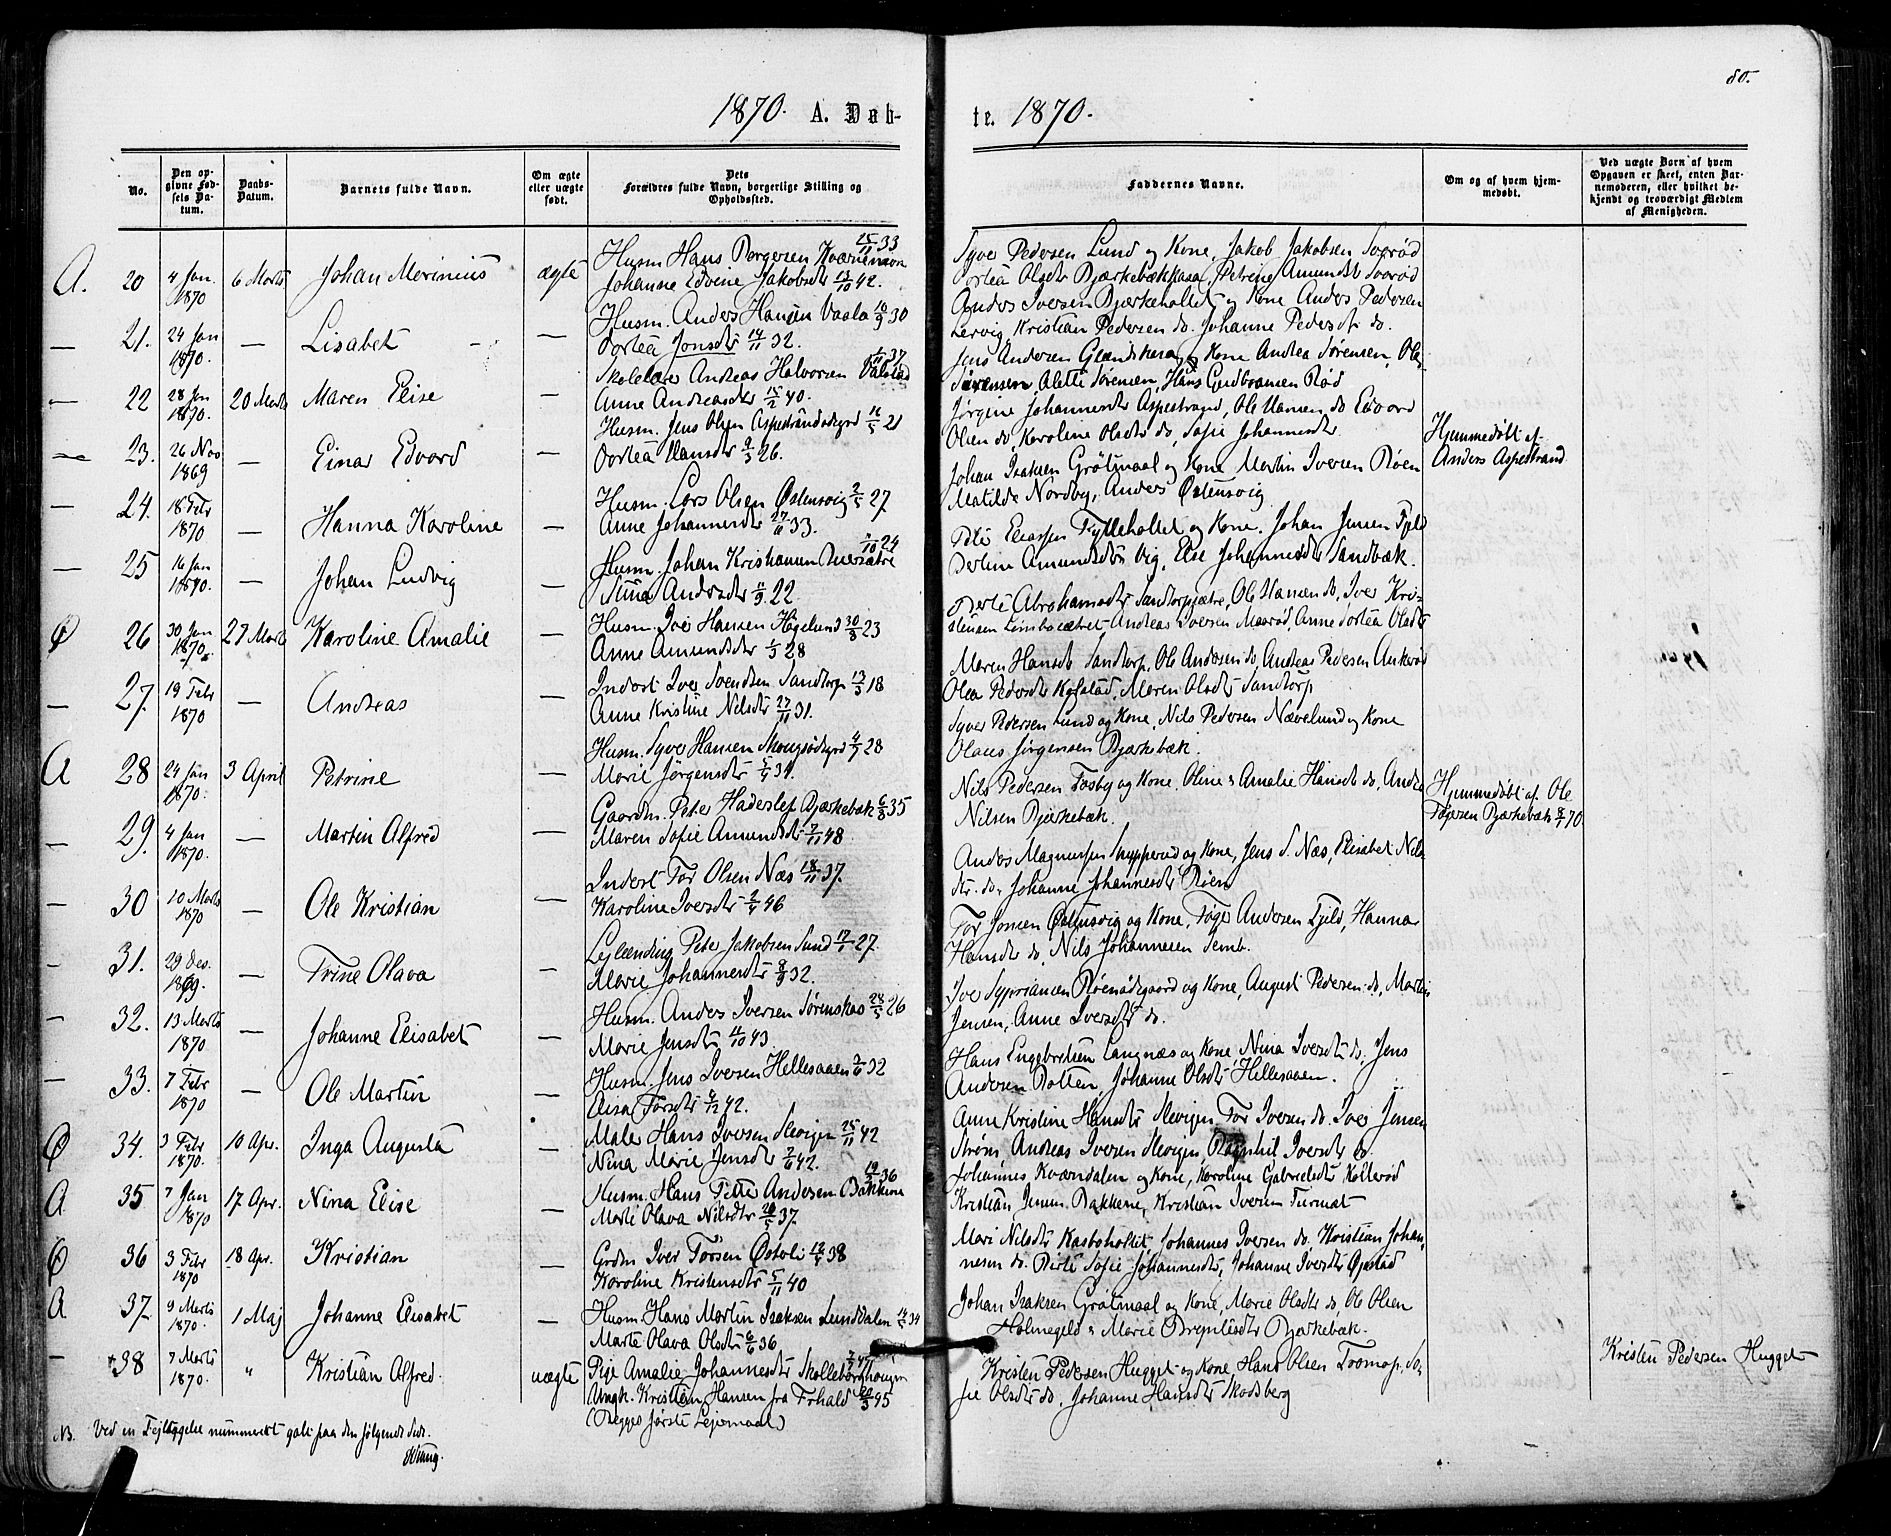 80.
1870. A. Døb-
te. 1870.
No.
Den op-
givne Fød-
sels Da-
tum.
Daabs-
Datum.
Barnets fulde Navn.
Om ægte
eller uægte
født.
Dets
Forældres fulde Navn, borgerlige Stilling og
Opholdssted.
Faddernes Navne.
Om og af hvem hjem-
medøbt.
Ved uægte Barn af hvem
Opgaven er skeet, enten Bar-
nemoderen, eller hvilket be-
kjendt og troværdigt Medlem
af Menigheden.
A. 20 4 Jan. 1870 6 Marts Johan Merinius ægte
Husm. Hans Børgersen 25/11 33
Johanne Edvine Jakobsdtr 13/10 42.
Syver Pedersen Lund og Kone, Jakob Jakobsen
Dortea Olsdtr Bjærkebækkasa, Petrine Amundsdtr
— 21. 24 Jan 1870. — Lisabet —
Husm. Anders Hansen Vaala 10/9 30
Dortea Jonsdtr 14/11 32.
Anders Iversen Bjærkeholdet og Kone Anders Pedersen
Lervig, Kristian Pedersen do. Johanne Pedersdtr do.
— 22 28 Jan 1870. 20 Marts Maren Elise —
Skolelærer Andreas Halvorsen 1/11 37
Anne Andreasdtr 15/2 40.
Jens Andersen og Kone Andrea Sørensen, Ole
Sørensen, Alette Sørensen, Hans Gudbransen Rød
— 23. 26 Nov 1869 — Einar Edvard —
Husm. Jens Olsen Aspestrandødegrd 11/5 21
Dortea Hansdtr 9/3 26.
Jørgine Johannesdtr Aspestrand, Ole Hansen do Edvard
Olsen do, Karoline Olsdtr do, Sofie Johannesdtr
Hjemmedøbt af
Anders Aspestrand
— 24. 18 Febr 1870 — Hanna Karoline —
Husm. Lars Olsen Østensvig 2/5 27
Anne Johannesdtr 27/6 33.
Johan Isaksen Grøtmaal og Kone Martin Iversen Røen
Matilde Nordby, Anders Østensvig
— 25 16 Jan 1870. — Johan Ludvig —
Husm. Johan Kristiansen 1/10 24
Stina Andersdtr 11/9 22.
Eliassen Fylleholtet og Kone, Johan Jensen Fjeld
Amundsdtr Vig, Else Johannesdtr Sandbæk.
Ø 26 30 Jan 1870. 27 Marts Karoline Amalie —
Husm. Iver Hansen Høgelund 30/8 23
Anne Amundsdtr 1/3 28
Berte Abrahamsdtr Sandtorpsætre, Ole Hansen do, Iver Kri-
stensen Andreas Iversen Masrød, Anne Dortea Olsdtr
— 27. 19 Febr 1870 — Andreas —
Inderst Iver Svendsen Sandtorp 13/3 18
Anne Kristine Nilsdtr 27/11 31.
Maren Hansdtr Sandtorp, Ole Andersen do, Andreas Pedersen Ankerød
Olea Pedersdtr Kolstad, Maren Olsdtr Sandtorp
A 28 24 Jan 1870. 3 April Petrine —
Husm. Syver Hansen 4/7 28
Marie Jørgensdtr 5/4 31.
Syver Pedersen Lund og Kone, Nils Pedersen Nævelund og Kone
Olaus Jørgensen Bjærkebæk.
— 29. 4 Jan 1870. — Martin Alfred —
Gaardm. Peter Haderslef Bjærkebæk 6/8 35
Maren Sofie Amundsdtr 7/11 48
Nils Pedersen Fosby og Kone, Oline & Amalie Hansdtr do, Andrea
Nilsen Bjærkebæk.
Hjemmedøbt af Ole
Bjærkebæk 8/1 70
— 30 10 Marts 1870 — Ole Kristian —
Inderst Tor Olsen Næs 18/11 37.
Karoline Iversdtr 2/4 46
Anders Magnussen og Kone, Jens S. Næs, Elisabet Nils-
dtr. do, Johanne Johannesdtr Røen
— 31. 29 Des. 1869. — Trine Olava —
Leilænding Peter Jakobsen Lund 17/1 27.
Marie Johannesdtr 8/9 32.
Tor Jonsen Østensvig og Kone, Tøger Andersen Fjeld, Hanna
Hansdtr do, Nils Johannesen Semb.
— 32. 13 Marts 1870 — Johanne Elisabet —
Husm. Anders Iversen Sørenskas 28/5 26
Marie Jensdtr 11/10 43.
Iver Syprianen Røenødegaard og Kone, August Pedersen do, Martin
Jensen, Anne Iversdtr do.
— 33. 7 Febr 1870 — Ole Martin —
Husm. Jens Iversen Hellesaaen 2/6 32
Aisa Torsdtr 9/12 42.
Hans Engebretsen Langnæs og Kone Nina Iversdtr do, Jens
Andersen Botten, Johanne Olsdtr Hellesaaen.
Ø 34. 3 Febr 1870. 10 Apr. Inga Augusta —
Maler Hans Iversen 25/11 42
Nina Marie Jensdtr 7/6 42.
Anne Kristine Hansdtr Tor Iversen do. Iver Jensen
Strøm, Andreas Iversen Ragnhil Iversdtr do.
A 35 7 Jan 1870 17 Apr. Nina Elise —
Husm. Hans Petter Andersen Bakkene 36
Marte Olava Nilsdtr 20/5 37.
Johannes Kværndalen og Kone, Karoline Gabrielsdtr Kollerød
Kristian Jensen Bakkene, Kristian Iversen
Ø 36 3 Febr 1870 18 Apr. Kristian —
Grdm. Iver Torsen Østoli 12/5 38
Karoline Kristensdtr 5/11 40
Mari Nilsdtr Kasboholtet Johannes Iversen do. Kristian Johan-
nesen do. Berte Sofie Johannesdtr, Johanne Iversdtr
A 37. 9 Marts 1870. 1 Maj Johanne Elisabet —
Husm. Hans Martin Isaksen Lunddalen 34
Marte Olava Olsdtr 6/6 36
Johan Isaksen Grøtmaal og Kone, Marie Olsdtr do, Ole Olsen
Holmegeld & Marie Bjærkebæk.
— 38 7 Marts 1870. " Kristian Alfred. uægte
Pige Amalie Johannesdtr
Ungk. Kristian Hansen fra Frhald 20/3 45
(Begges første Leiermaal)
Kristen Pedersen Hugget og Kone, Hans Olsen So-
fie Olsdtr do, Johanne Hansdtr Skodsberg
Kristen Pedersen Hugget
NB. Ved en Fejltagelse nummereret galt paa den følgende Side.